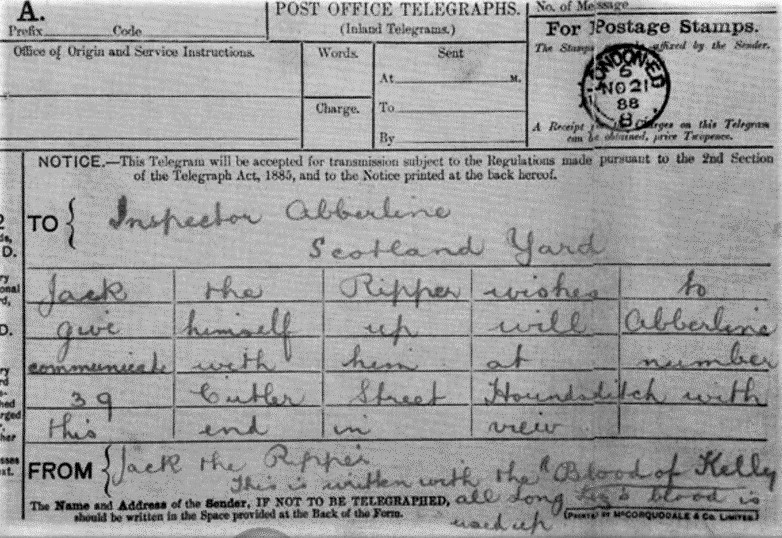 A.
Prefix Code
POST OFFICE TELEGRAPHS.
(Inland Telegrams.)
No. of Message
For Postage Stamps.
Office of Origin and Service Instructions.
Words.
Sent
The Stamps affixed by the Sender.
At M.
Charge.
To
By
LONDON·E.D
5
NO 21
88
8
A Receipt for the Charges on this Telegram
can be obtained, price Twopence.
NOTICE.—This Telegram will be accepted for transmission subject to the Regulations made pursuant to the 2nd Section
of the Telegraph Act, 1885, and to the Notice printed at the back hereof.
TO { Inspector Abberline
Scotland Yard
Jack the Ripper wishes to
give himself up will Abberline
communicate with him at number
39 Cutler Street Houndsditch with
this end in view
FROM { Jack the Ripper
This is written with the Blood of Kelly
all Long Liz's blood is
used up
The Name and Address of the Sender, IF NOT TO BE TELEGRAPHED,
should be written in the Space provided at the Back of the Form.
(PRINTED BY McCORQUODALE & Co. LIMITED.)